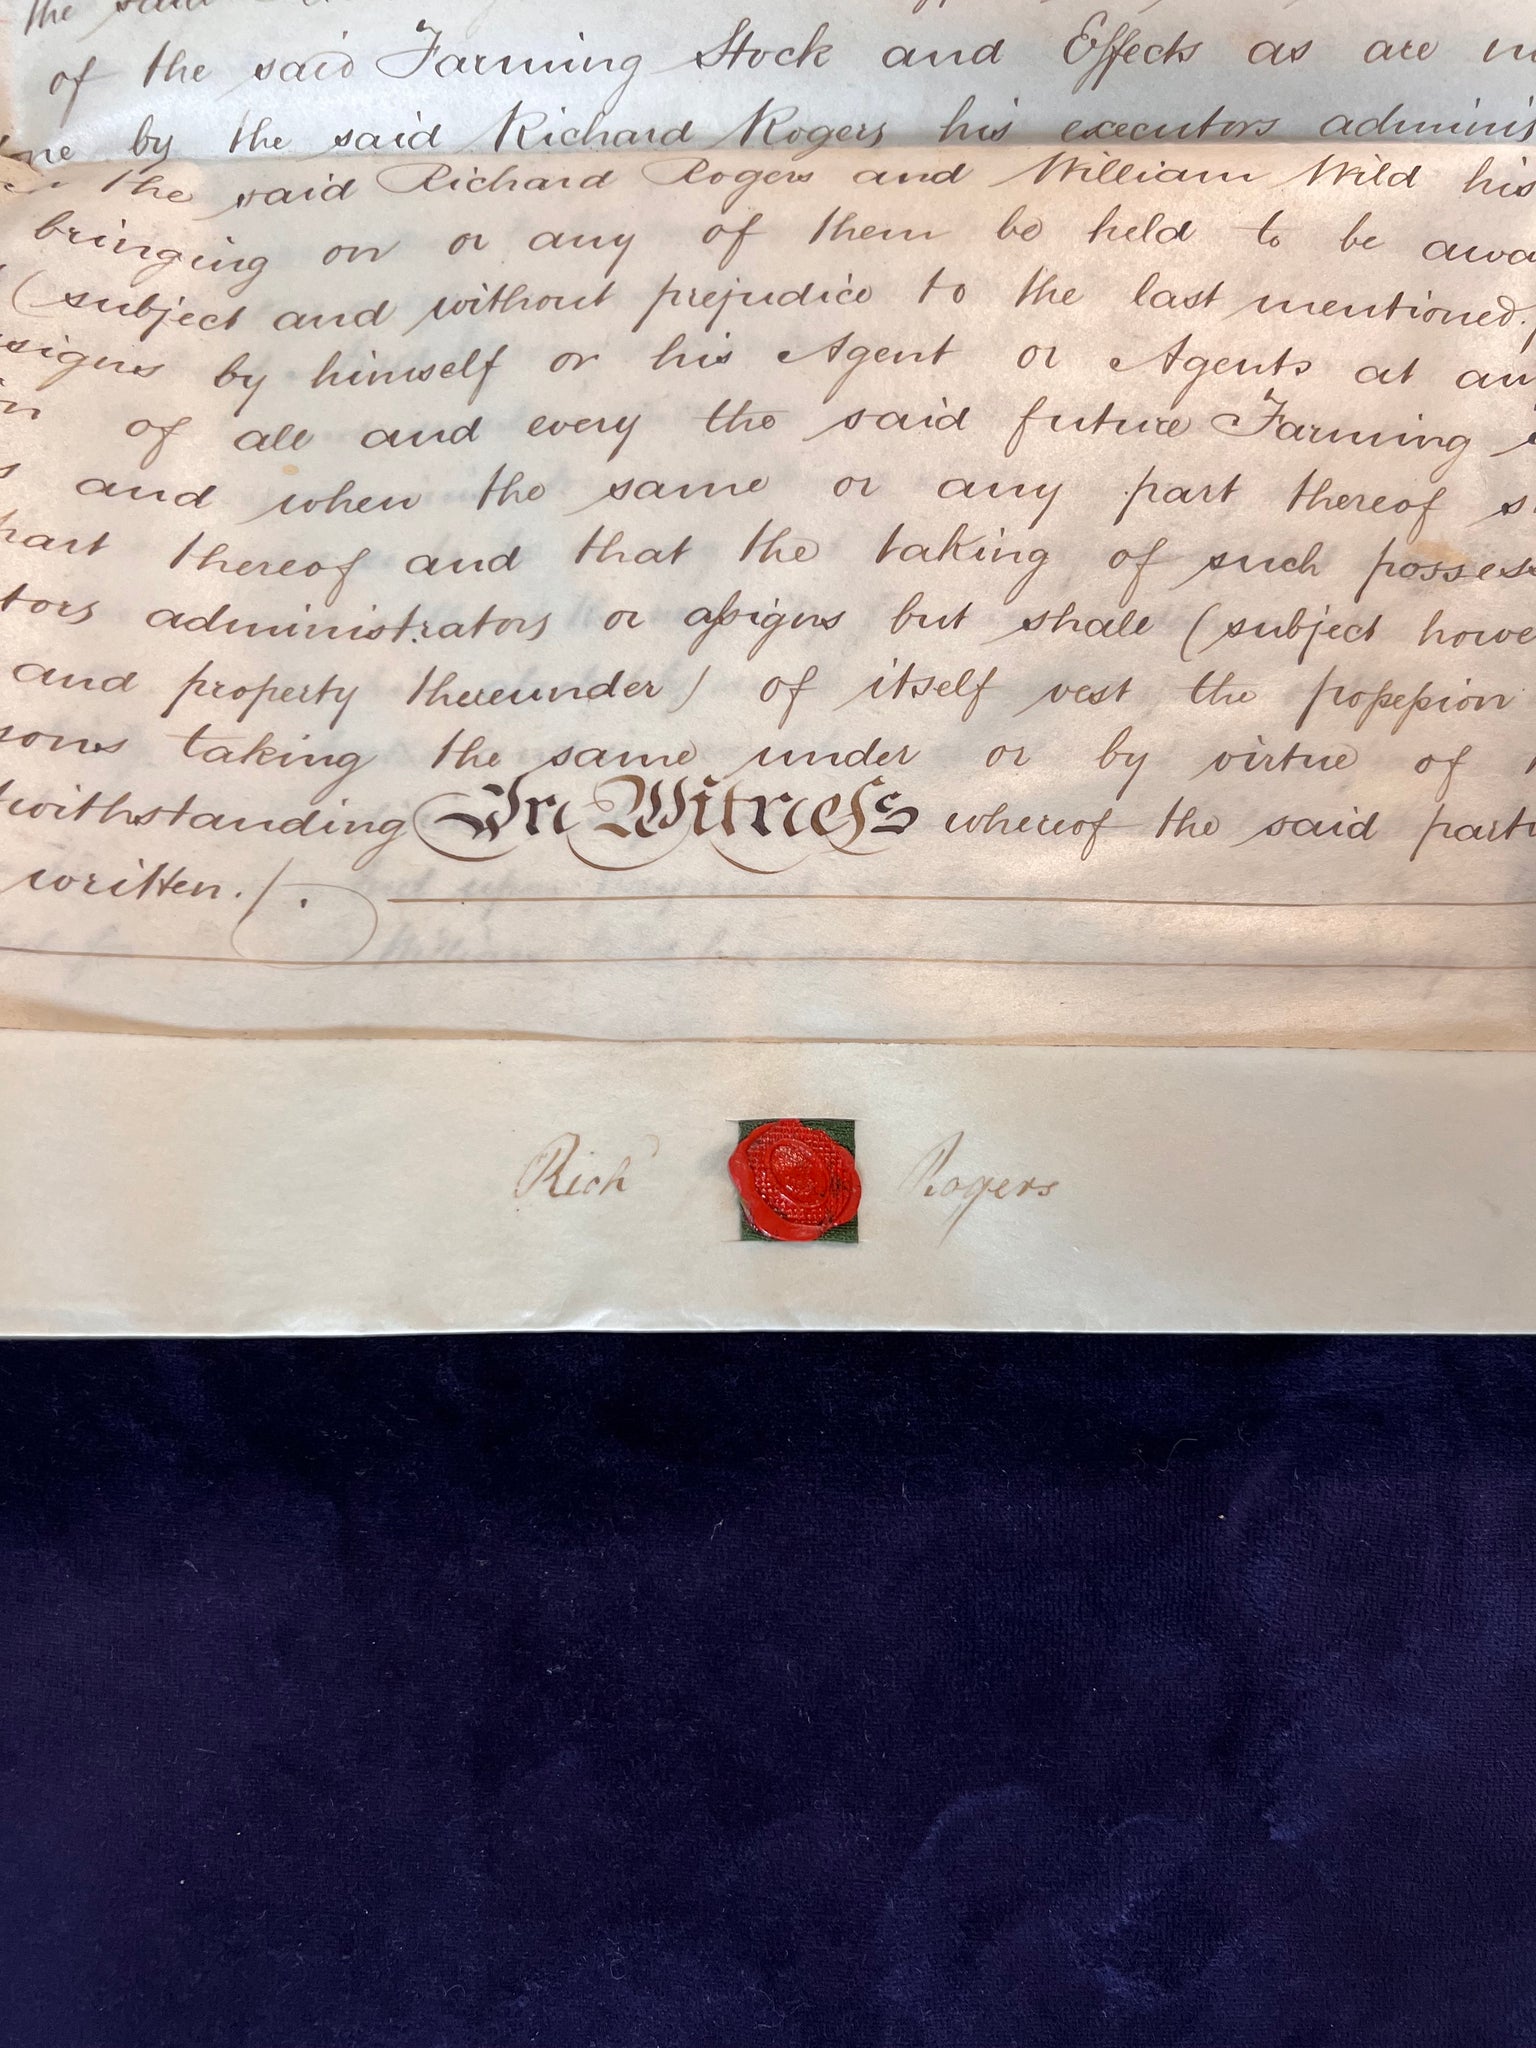 the said
of the said Farming Stock and Effects as are
by the said Richard Rogers his executors adminis
the said Richard Rogers and William Wild his
bringing on or any of them be held to be awa
(subject and without prejudice to the last mentioned
signs by himself or his Agent or Agents at an
of all and every the said future Farming
and when the same or any part thereof s
part thereof and that the taking of such possess
tors administrators or assigns but shall (subject howe
and property thereunder) of itself vest the possession
sons taking the same under or by virtue of
twithstanding In Witness whereof the said parti
written./.
Richd Rogers